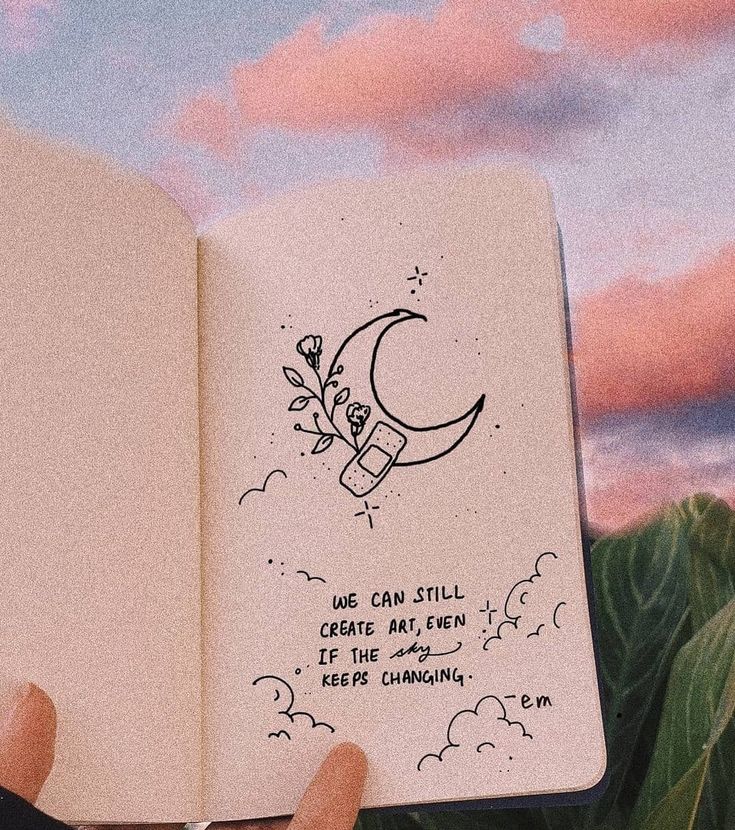 WE CAN STILL
CREATE ART, EVEN
IF THE sky
KEEPS CHANGING.
-em